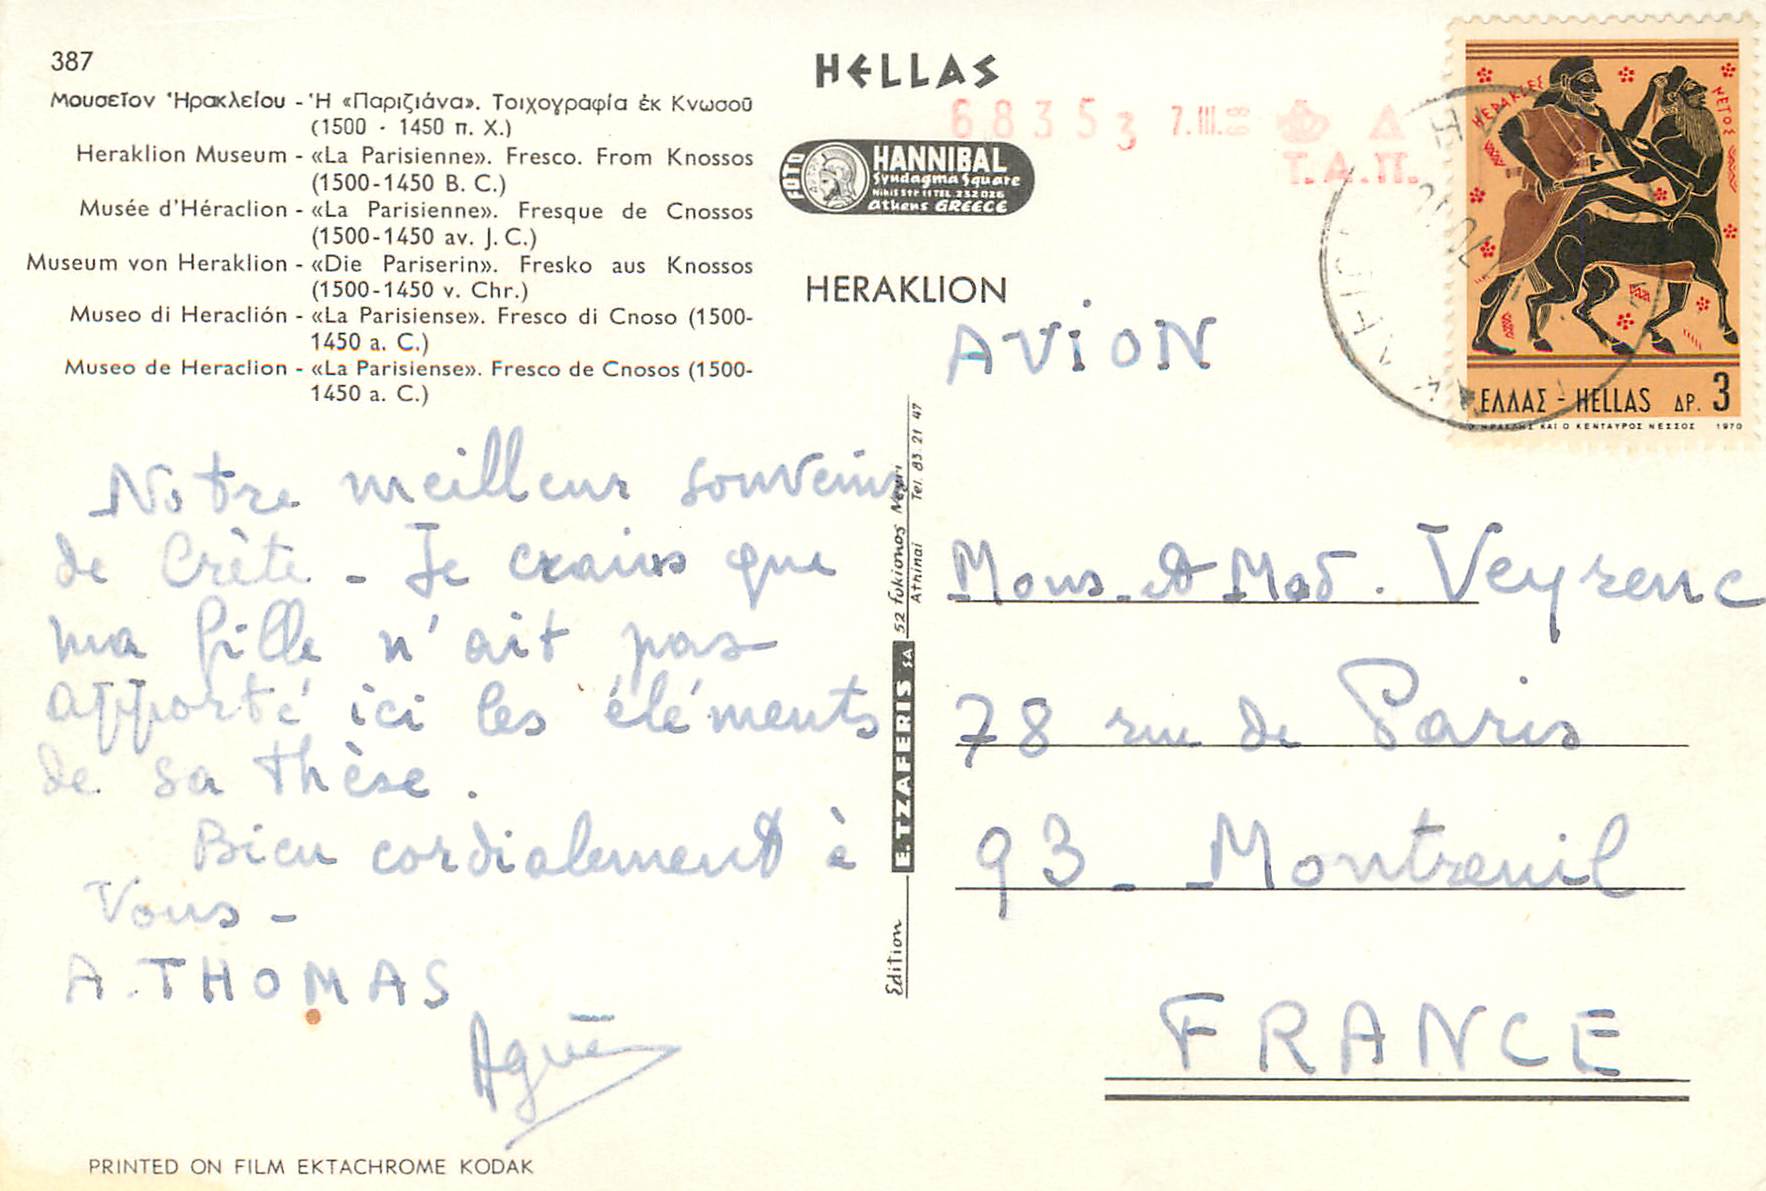 387
Μουσεῖον Ἡρακλείου - Ἡ «Παριζιάνα». Τοιχογραφία ἐκ Κνωσοῦ
(1500 - 1450 π. Χ.)
Heraklion Museum - «La Parisienne». Fresco. From Knossos
(1500-1450 B. C.)
Musée d'Héraclion - «La Parisienne». Fresque de Cnossos
(1500-1450 av. J. C.)
Museum von Heraklion - «Die Pariserin». Fresko aus Knossos
(1500-1450 v. Chr.)
Museo di Heraclión - «La Parisiense». Fresco di Cnoso (1500-
1450 a. C.)
Museo de Heraclion - «La Parisiense». Fresco de Cnosos (1500-
1450 a. C.)
Notre meilleur souvenir
de Crète - Je crains que
ma fille n'ait pas
apporté ici les éléments
de sa thèse.
Bien cordialement à
Vous -
A. THOMAS
PRINTED ON FILM EKTACHROME KODAK
Edition
E. TZAFERIS SA
52 Fokionos Negri
Athinai Tel. 83 21 47
HELLAS
68353 7.III.
Τ.Α.Π.
FOTO
HANNIBAL
Syndagma Square
Nikis Str 11 TEL. 232026
Athens GREECE
HERAKLION
AVION
ΗΕΡΑΚΛΕΣ
ΝΕΤΟΣ
ΕΛΛΑΣ - HELLAS ΔΡ. 3
Ο ΗΡΑΚΛΗΣ ΚΑΙ Ο ΚΕΝΤΑΥΡΟΣ ΝΕΣΣΟΣ 1970
Mons. et Mad. Veyrenc
78 rue de Paris
93 - Montreuil
FRANCE